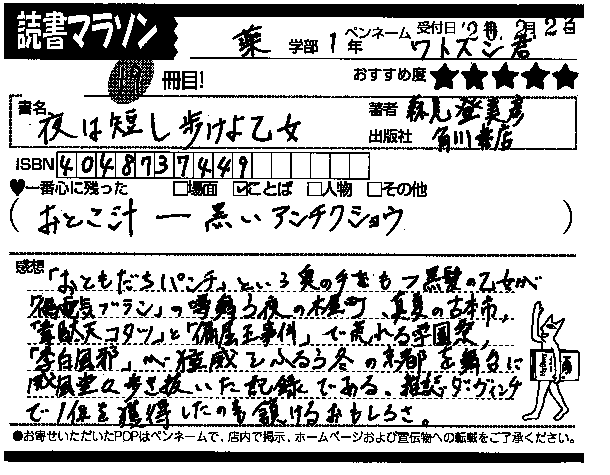 読書マラソン
薬 学部 1 年 ペンネーム ワトスン君 受付日
冊目! おすすめ度 ★★★★★
書名 夜は短し歩けよ乙女
著者 森見登美彦
出版社 角川書店
ISBN 4048737449
♥一番心に残った □場面 ☑ことば □人物 □その他
(おとこ汁 ― 黒いアンチクショウ)
感想
「おともだちパンチ」という奥の手をもつ黒髪の乙女が
「偽電気ブラン」の噂舞う夜の木屋町、真夏の古本市、
「韋駄天コタツ」と「偏屈王事件」で荒れる学園祭、
「李白風邪」が猛威をふるう冬の京都を舞台に
威風堂々歩き抜いた記録である。雑誌ダ・ヴィンチ
で1位を獲得したのも頷けるおもしろさ。
●お寄せいただいたPOPはペンネームで、店内で掲示、ホームページおよび宣伝物への転載をご了承ください。